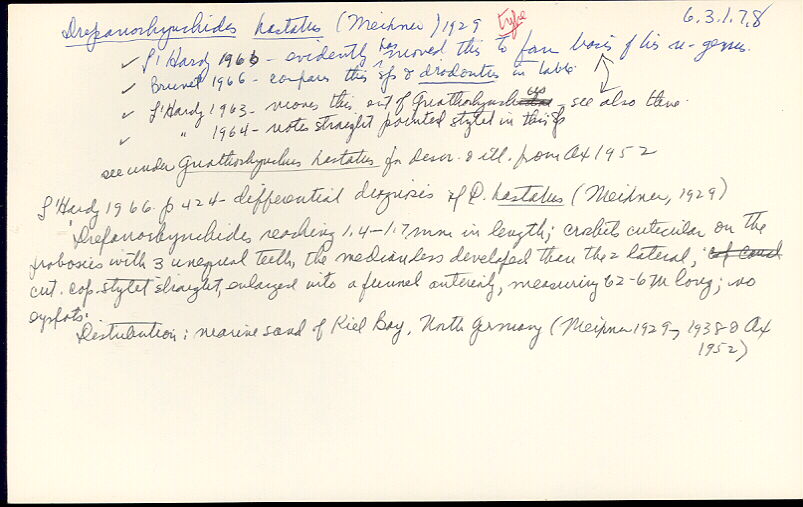 Drepanorhynchides hastatus (Meixner) 1929 type 6.3.1.7.8
✓ L'Hardy 1966 - evidently has moved this to form basis of his n-genus.
✓ Brunet 1966 - compares this sp & diodontus in table
✓ L'Hardy 1963 - moves this out of Gnathorhynchus - see also there.
✓ " 1964 - notes straight pointed stylet in this sp
see under Gnathorhynchus hastatus for descr. & ill. from Ax 1952
L'Hardy 1966. p 424 - differential diagnosis of D. hastatus (Meixner, 1929)
"Drepanorhynchides reaching 1.4-1.7 mm in length; crochets cuticular on the
proboscis with 3 unequal teeth, the median less developed than the 2 lateral;
cut. cop. stylet straight, enlarged into a funnel anteriorly, measuring 62-67µ long; no
eyespots."
Distribution: marine sand of Kiel Bay, North Germany (Meixner 1929, 1938 & Ax
1952)